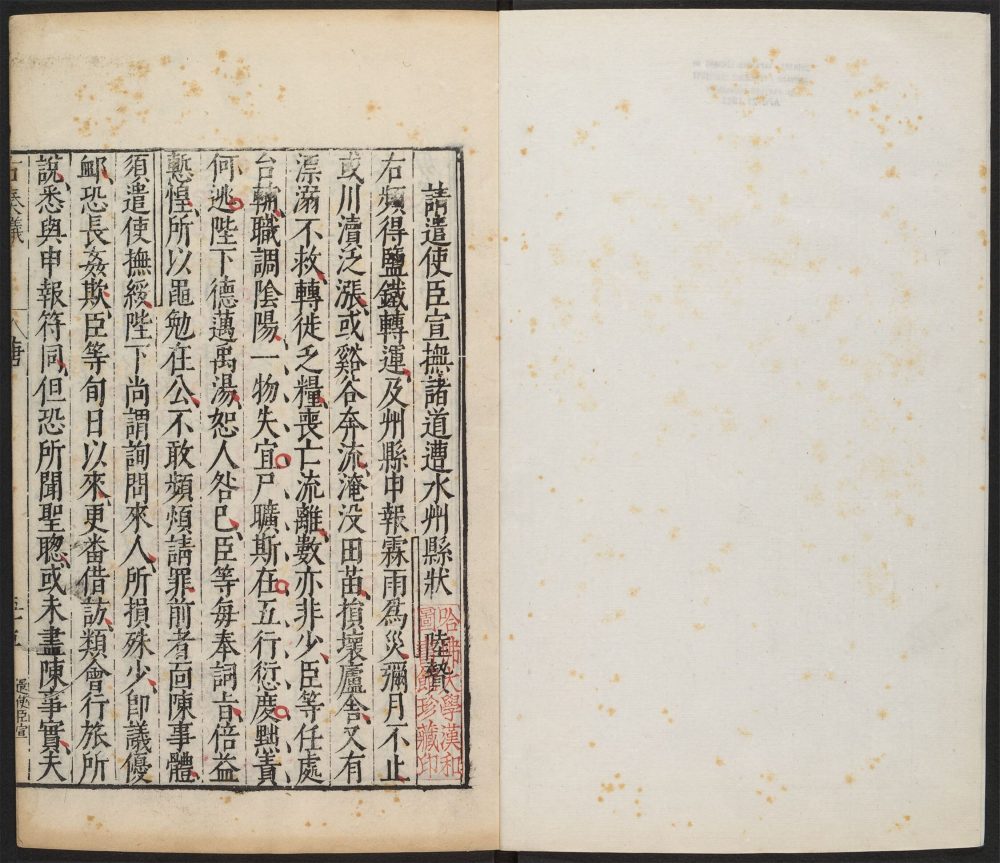 請遣使臣宣撫諸道遭水州縣狀 陸贄
右頻得鹽鐵轉運及州縣申報霖雨爲災彌月不止
或川瀆泛漲或谿谷奔流淹没田苗損壞廬舍又有
漂溺不救轉徙乏糧喪亡流離數亦非少臣等任處
台輔職調陰陽一物失宜尸曠斯在五行愆度黜責
何逃陛下德邁禹湯恕人咎已臣等每奉詞旨倍益
慙惶所以黽勉在公不敢頻煩請罪前者面陳事體
須遣使撫綏陛下尚謂詢問來人所損殊少即議優
䘏恐長姦欺臣等旬日以來更番借訪類會行旅所
說悉與申報符同但恐所聞聖聰或未盡陳事實夫
古奏議 唐
遣使臣宣
哈佛大學漢和
圖書館珍藏印